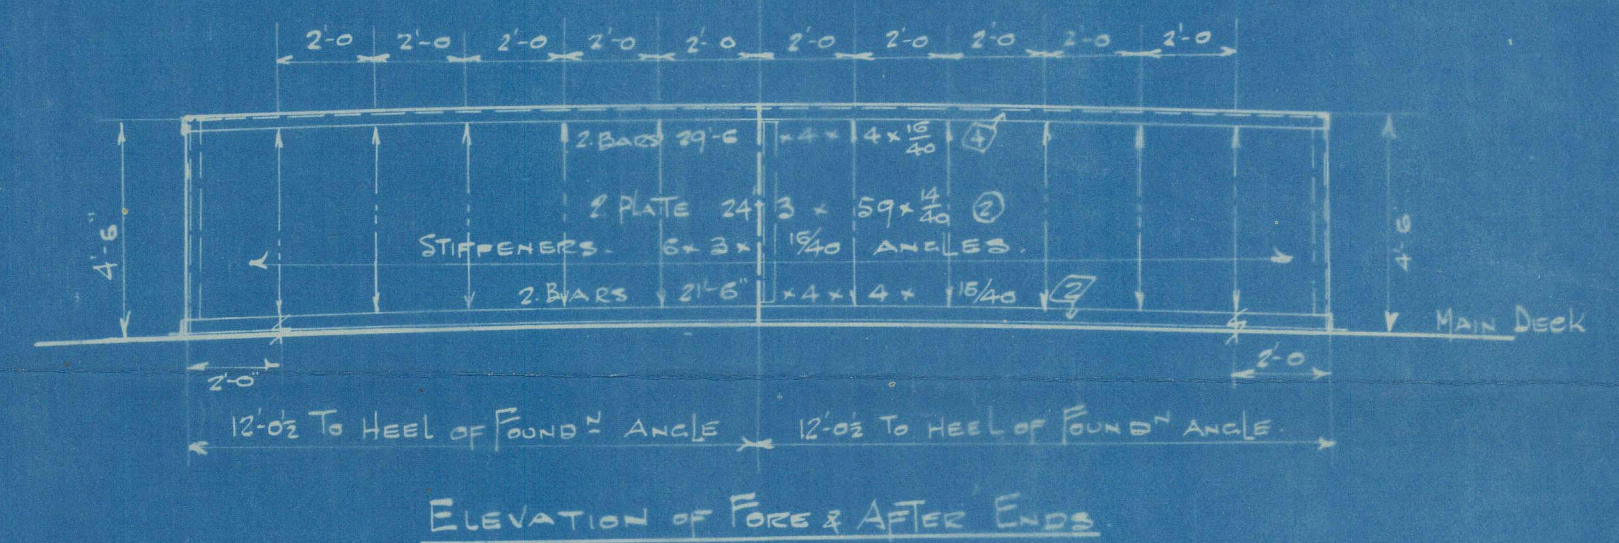 2'-0 2'-0 2'-0 2'-0 2'-0 2'-0 2'-0 2'-0 2'-0 2'-0
2. BARS 29'-6 × 4 × 4 × 16/40 4
4'-6"
2 PLATE 24'3 × 59 × 14/40 2
4'-6"
STIFFENERS. 6 × 3 × 16/40 ANGLES.
2. BARS 21'-6" × 4 × 4 × 16/40 2
MAIN DECK
2'-0" 2'-0
12'-0½ TO HEEL OF FOUNDᴺ ANGLE 12'-0½ TO HEEL OF FOUNDᴺ ANGLE.
ELEVATION OF FORE & AFTER ENDS